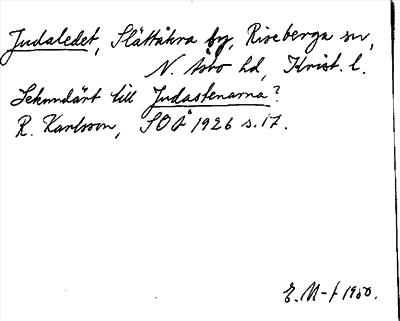 Judaledet, Slättåkra by, Riseberga sn,
N. Åsbo hd, Krist. l.
Sekundärt till Judastenarna?
R. Karlsson, SOÅ 1926 s. 17.
E. M-f 1950.